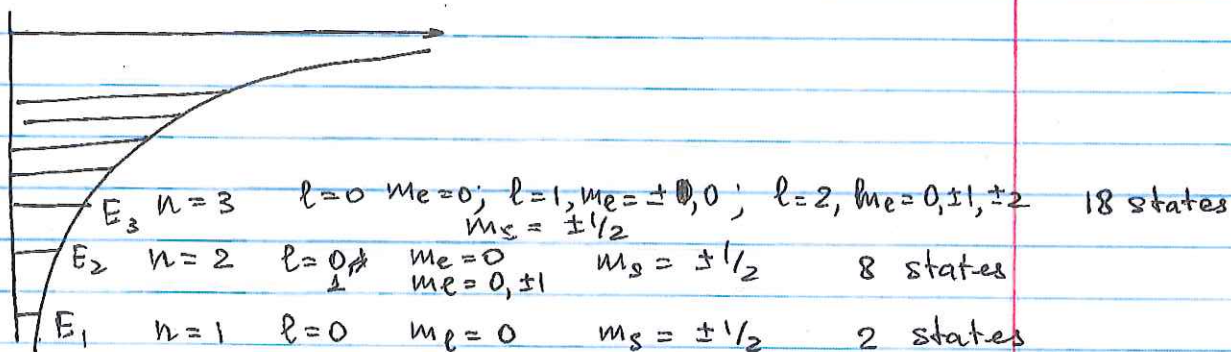 E₃ n=3 l=0 mₑ=0; l=1, mₑ=±0,0; l=2, mₑ=0,±1,±2 18 states
mₛ = ±1/2
E₂ n=2 l=0, mₑ=0 mₛ = ±1/2 8 states
1 mₑ=0,±1
E₁ n=1 l=0 mₗ=0 mₛ = ±1/2 2 states